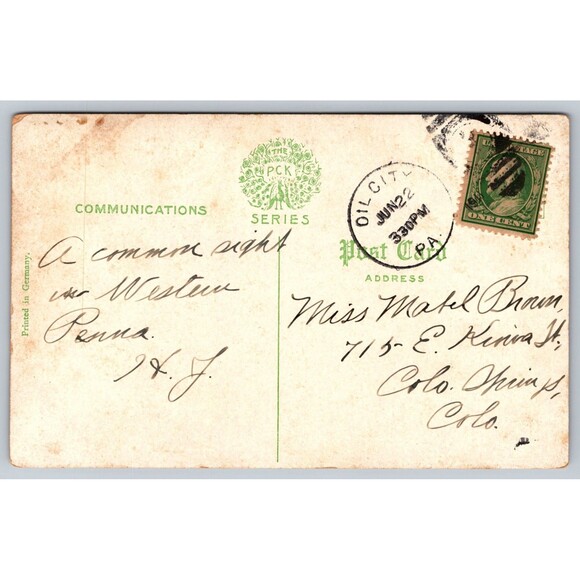 THE
PCK
SERIES
COMMUNICATIONS
OIL CITY
JUN 22
330PM
PA.
U.S. POSTAGE
ONE CENT
Post Card
ADDRESS
A common sight
in Western
Penna.
H. J.
Miss Mabel Brown,
715 E. Kiowa St,
Colo. Springs,
Colo.
Printed in Germany.